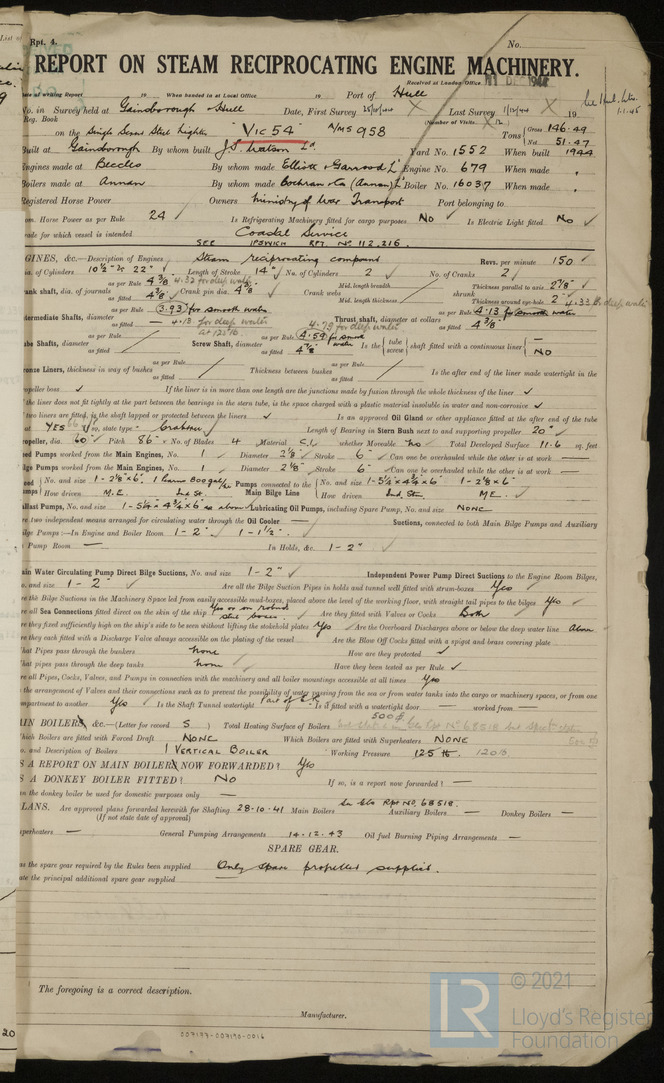 Rpt. 4.
No.
REPORT ON STEAM RECIPROCATING ENGINE MACHINERY.
Received at London Office 11 DEC 1944
Date of writing Report 19 When handed in at Local Office 19 Port of Hull
No. in Survey held at Gainsborough & Hull Date, First Survey Last Survey 1/12/44 19
Reg. Book (Number of Visits. 12
on the Single Screw Steel Lighter "VIC 54" 958 Tons Gross 146.49 Net 51.47
Built at Gainsborough By whom built J.S. Watson Ld Yard No. 1552 When built 1944
Engines made at Beccles By whom made Elliott & Garrood Ld Engine No. 679 When made "
Boilers made at Annan By whom made Cochran & Co (Annan) Ld Boiler No. 16037 When made "
Registered Horse Power Owners Ministry of War Transport Port belonging to
Nom. Horse Power as per Rule 24 Is Refrigerating Machinery fitted for cargo purposes No Is Electric Light fitted No
Trade for which vessel is intended Coastal Service
SEE IPSWICH RPT. No 112,216.
ENGINES, &c.—Description of Engines Steam reciprocating compound Revs. per minute 150
Dia. of Cylinders 10½" & 22" Length of Stroke 14" No. of Cylinders 2 No. of Cranks 2
Crank shaft, dia. of journals as per Rule 4⅜ 4.32 for deep water as fitted 4⅜ Crank pin dia. 4⅜ Crank webs Mid. length breadth Mid. length thickness shrunk Thickness parallel to axis 2⅛" Thickness around eye-hole 2"
Intermediate Shafts, diameter as per Rule 3.93 for smooth water 4.13 for deep water as fitted — Thrust shaft, diameter at collars as per Rule 4.13 for smooth water 4.33 for deep water as fitted 4⅜"
Tube Shafts, diameter as per Rule as fitted Screw Shaft, diameter as per Rule 4.59 for smooth water 4.79 for deep water as fitted 4⅞" Is the tube screw shaft fitted with a continuous liner — No
Bronze Liners, thickness in way of bushes as per Rule as fitted Thickness between bushes as per Rule as fitted Is the after end of the liner made watertight in the
propeller boss ✓ If the liner is in more than one length are the junctions made by fusion through the whole thickness of the liner ✓
If the liner does not fit tightly at the part between the bearings in the stern tube, is the space charged with a plastic material insoluble in water and non-corrosive ✓
If two liners are fitted, is the shaft lapped or protected between the liners ✓ Is an approved Oil Gland or other appliance fitted at the after end of the tube
shaft YES If so, state type Length of Bearing in Stern Bush next to and supporting propeller 20"
Propeller, dia. 60" Pitch 86" No. of Blades 4 Material C.I. whether Moveable No Total Developed Surface 11.6 sq. feet
Feed Pumps worked from the Main Engines, No. 1 Diameter 2⅛" Stroke 6" Can one be overhauled while the other is at work —
Bilge Pumps worked from the Main Engines, No. 1 Diameter 2⅛" Stroke 6" Can one be overhauled while the other is at work —
Feed Pumps No. and size 1 - 2⅛"×6" Pumps connected to the Main Bilge Line No. and size 1-5¼"×4¾"×6" 1-2⅛"×6"
How driven M.E. Ind. St. How driven Ind. Stm. ME.
Ballast Pumps, No. and size 1 - 5¼"×4¾"×6" as above Lubricating Oil Pumps, including Spare Pump, No. and size NONE
Are two independent means arranged for circulating water through the Oil Cooler — Suctions, connected to both Main Bilge Pumps and Auxiliary
Bilge Pumps:—In Engine and Boiler Room 1-2" 1-1½"
In Pump Room — In Holds, &c. 1-2"
Main Water Circulating Pump Direct Bilge Suctions, No. and size 1-2" Independent Power Pump Direct Suctions to the Engine Room Bilges,
No. and size 1-2" Are all the Bilge Suction Pipes in holds and tunnel well fitted with strum-boxes Yes
Are the Bilge Suctions in the Machinery Space led from easily accessible mud-boxes, placed above the level of the working floor, with straight tail pipes to the bilges Yes
Are all Sea Connections fitted direct on the skin of the ship Yes or on robust steel boxes Are they fitted with Valves or Cocks Both
Are they fixed sufficiently high on the ship's side to be seen without lifting the stokehold plates Yes Are the Overboard Discharges above or below the deep water line Above
Are they each fitted with a Discharge Valve always accessible on the plating of the vessel Are the Blow Off Cocks fitted with a spigot and brass covering plate
What Pipes pass through the bunkers None How are they protected ✓
What pipes pass through the deep tanks None Have they been tested as per Rule ✓
Are all Pipes, Cocks, Valves, and Pumps in connection with the machinery and all boiler mountings accessible at all times Yes
Is the arrangement of Valves and their connections such as to prevent the possibility of water passing from the sea or from water tanks into the cargo or machinery spaces, or from one
compartment to another Yes Is the Shaft Tunnel watertight Part of E.R. Is it fitted with a watertight door — worked from —
MAIN BOILERS, &c.—(Letter for record S) Total Heating Surface of Boilers 500
Which Boilers are fitted with Forced Draft NONE Which Boilers are fitted with Superheaters NONE
No. and Description of Boilers 1 VERTICAL BOILER Working Pressure 125 lb. 120 lb
IS A REPORT ON MAIN BOILERS NOW FORWARDED? Yes
IS A DONKEY BOILER FITTED? NO If so, is a report now forwarded? —
Can the donkey boiler be used for domestic purposes only —
PLANS. Are approved plans forwarded herewith for Shafting 28.10.41 Main Boilers See Gls Rpt No. 68518. Auxiliary Boilers — Donkey Boilers —
(If not state date of approval)
Superheaters — General Pumping Arrangements 14.12.43 Oil fuel Burning Piping Arrangements —
SPARE GEAR.
Has the spare gear required by the Rules been supplied Only spare propeller supplied.
State the principal additional spare gear supplied
The foregoing is a correct description.
Manufacturer.
007177-007190-0016
© 2021
LR
Lloyd's Register
Foundation
20